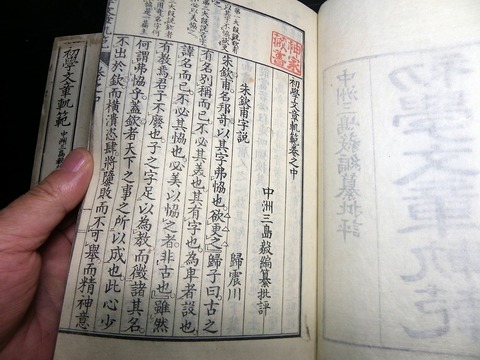 初學文章軌範卷之中
中洲三島毅編纂批評
朱欽甫字說
歸震川
朱欽甫名邦奇以其字弗協也欲更之歸子曰古之
有名別稱而已不必其美也其有字也為卑者設也
諱名而已不必其協也必美以協之者非古也雖然
有教焉君子不廢也子之字足以為教而徵諸其名
何謂弗協乎蓋欽者天下之事之所以成也此心少
不出於欽而橫潰恣肆將隳敗而不可舉而精神意
卷之中
初學文章軌範
中洲三島毅